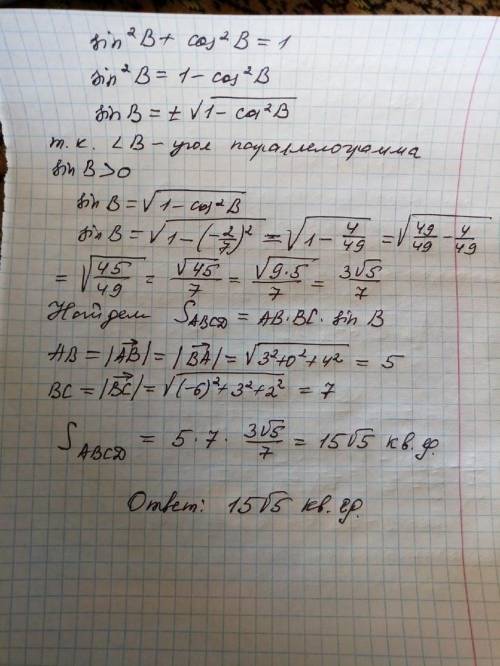 sin²B + cos²B = 1
sin²B = 1 - cos²B
sin B = ± √(1 - cos²B)
т.к. ∠B - угол параллелограмма
sin B > 0
sin B = √(1 - cos²B)
sin B = √(1 - (-2/7)²) = √(1 - 4/49) = √(49/49 - 4/49)
= √(45/49) = √45/7 = √(9·5)/7 = 3√5/7
Найдем S_ABCD = AB · BC · sin B
AB = |AB⃗| = |BA⃗| = √(3² + 0² + 4²) = 5
BC = |BC⃗| = √((-6)² + 3² + 2²) = 7
S_ABCD = 5 · 7 · 3√5/7 = 15√5 кв. ф.
Ответ: 15√5 кв.